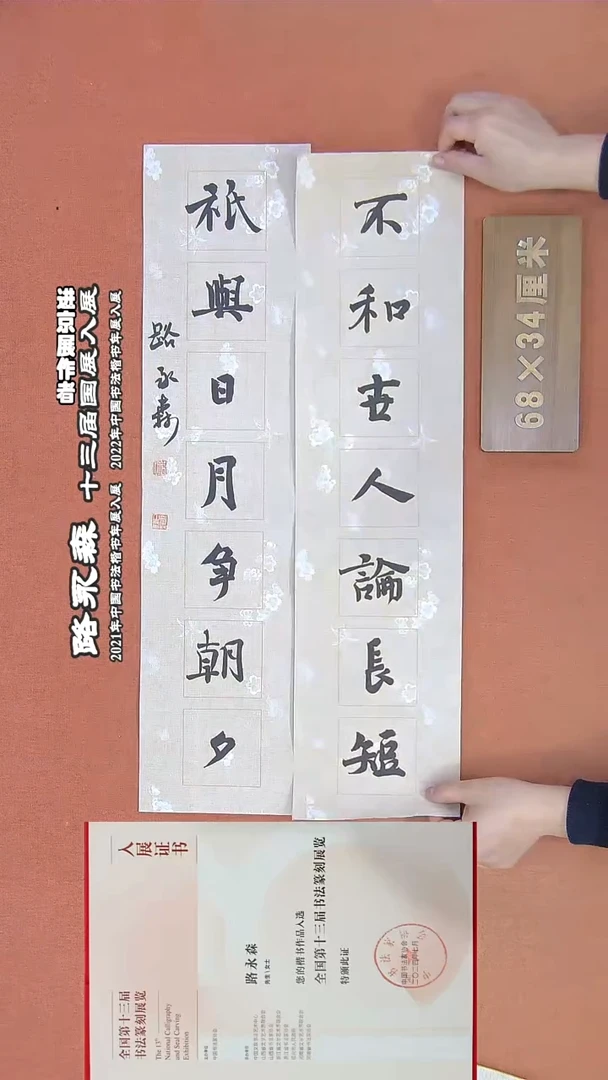 不和世人論長短
祇與日月争朝夕
路永森
68×34厘米
路永森
十三届国展入展
2021年中国书法楷书年展入展
2022年中国书法楷书年展入展
入展证书
全国第十三届
书法篆刻展览
The 13th
National Calligraphy
and Seal Carving
Exhibition
路永森
您的楷书作品入选
全国第十三届书法篆刻展览
特颁此证